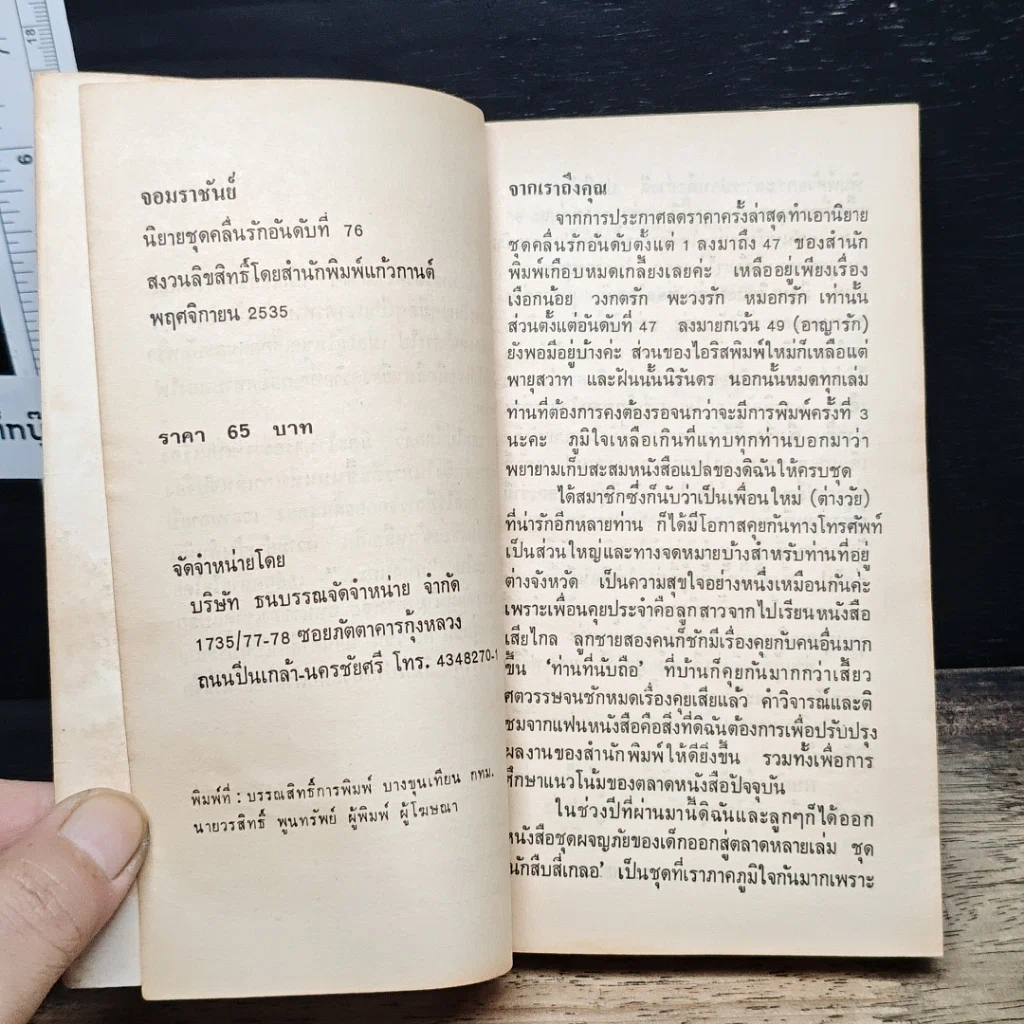 จอมราชันย์
นิยายชุดคลื่นรักอันดับที่ 76
สงวนลิขสิทธิ์โดยสำนักพิมพ์แก้วกานต์
พฤศจิกายน 2535
ราคา 65 บาท
จัดจำหน่ายโดย
บริษัท ธนบรรณจัดจำหน่าย จำกัด
1735/77-78 ซอยภัตตาคารกุ้งหลวง
ถนนปิ่นเกล้า-นครชัยศรี โทร. 4348270-1
พิมพ์ที่ : บรรณสิทธิ์การพิมพ์ บางขุนเทียน กทม.
นายวรสิทธิ์ พูนทรัพย์ ผู้พิมพ์ ผู้โฆษณา
จากเราถึงคุณ
จากการประกาศลดราคาครั้งล่าสุดทำเอานิยาย
ชุดคลื่นรักอันดับตั้งแต่ 1 ลงมาถึง 47 ของสำนัก
พิมพ์เกือบหมดเกลี้ยงเลยค่ะ เหลืออยู่เพียงเรื่อง
เงือกน้อย วงกตรัก พะวงรัก หมอกรัก เท่านั้น
ส่วนตั้งแต่อันดับที่ 47 ลงมายกเว้น 49 (อาญารัก)
ยังพอมีอยู่บ้างค่ะ ส่วนของไอริสพิมพ์ใหม่ก็เหลือแต่
พายุสวาท และฝันนั้นนิรันดร นอกนั้นหมดทุกเล่ม
ท่านที่ต้องการคงต้องรอจนกว่าจะมีการพิมพ์ครั้งที่ 3
นะคะ ภูมิใจเหลือเกินที่แทบทุกท่านบอกมาว่า
พยายามเก็บสะสมหนังสือแปลของดิฉันให้ครบชุด
ได้สมาชิกซึ่งก็นับว่าเป็นเพื่อนใหม่ (ต่างวัย)
ที่น่ารักอีกหลายท่าน ก็ได้มีโอกาสคุยกันทางโทรศัพท์
เป็นส่วนใหญ่และทางจดหมายบ้างสำหรับท่านที่อยู่
ต่างจังหวัด เป็นความสุขใจอย่างหนึ่งเหมือนกันค่ะ
เพราะเพื่อนคุยประจำคือลูกสาวจากไปเรียนหนังสือ
เสียไกล ลูกชายสองคนก็ชักมีเรื่องคุยกับคนอื่นมาก
ขึ้น ‘ท่านที่นับถือ’ ที่บ้านก็คุยกันมากกว่าเสี้ยว
ศตวรรษจนชักหมดเรื่องคุยเสียแล้ว คำวิจารณ์และติ
ชมจากแฟนหนังสือคือสิ่งที่ดิฉันต้องการเพื่อปรับปรุง
ผลงานของสำนักพิมพ์ให้ดียิ่งขึ้น รวมทั้งเพื่อการ
ศึกษาแนวโน้มของตลาดหนังสือปัจจุบัน
ในช่วงปีที่ผ่านมานี้ดิฉันและลูกๆก็ได้ออก
หนังสือชุดผจญภัยของเด็กออกสู่ตลาดหลายเล่ม ชุด
นักสืบสี่เกลอ’ เป็นชุดที่เราภาคภูมิใจกันมากเพราะ
18
7
6